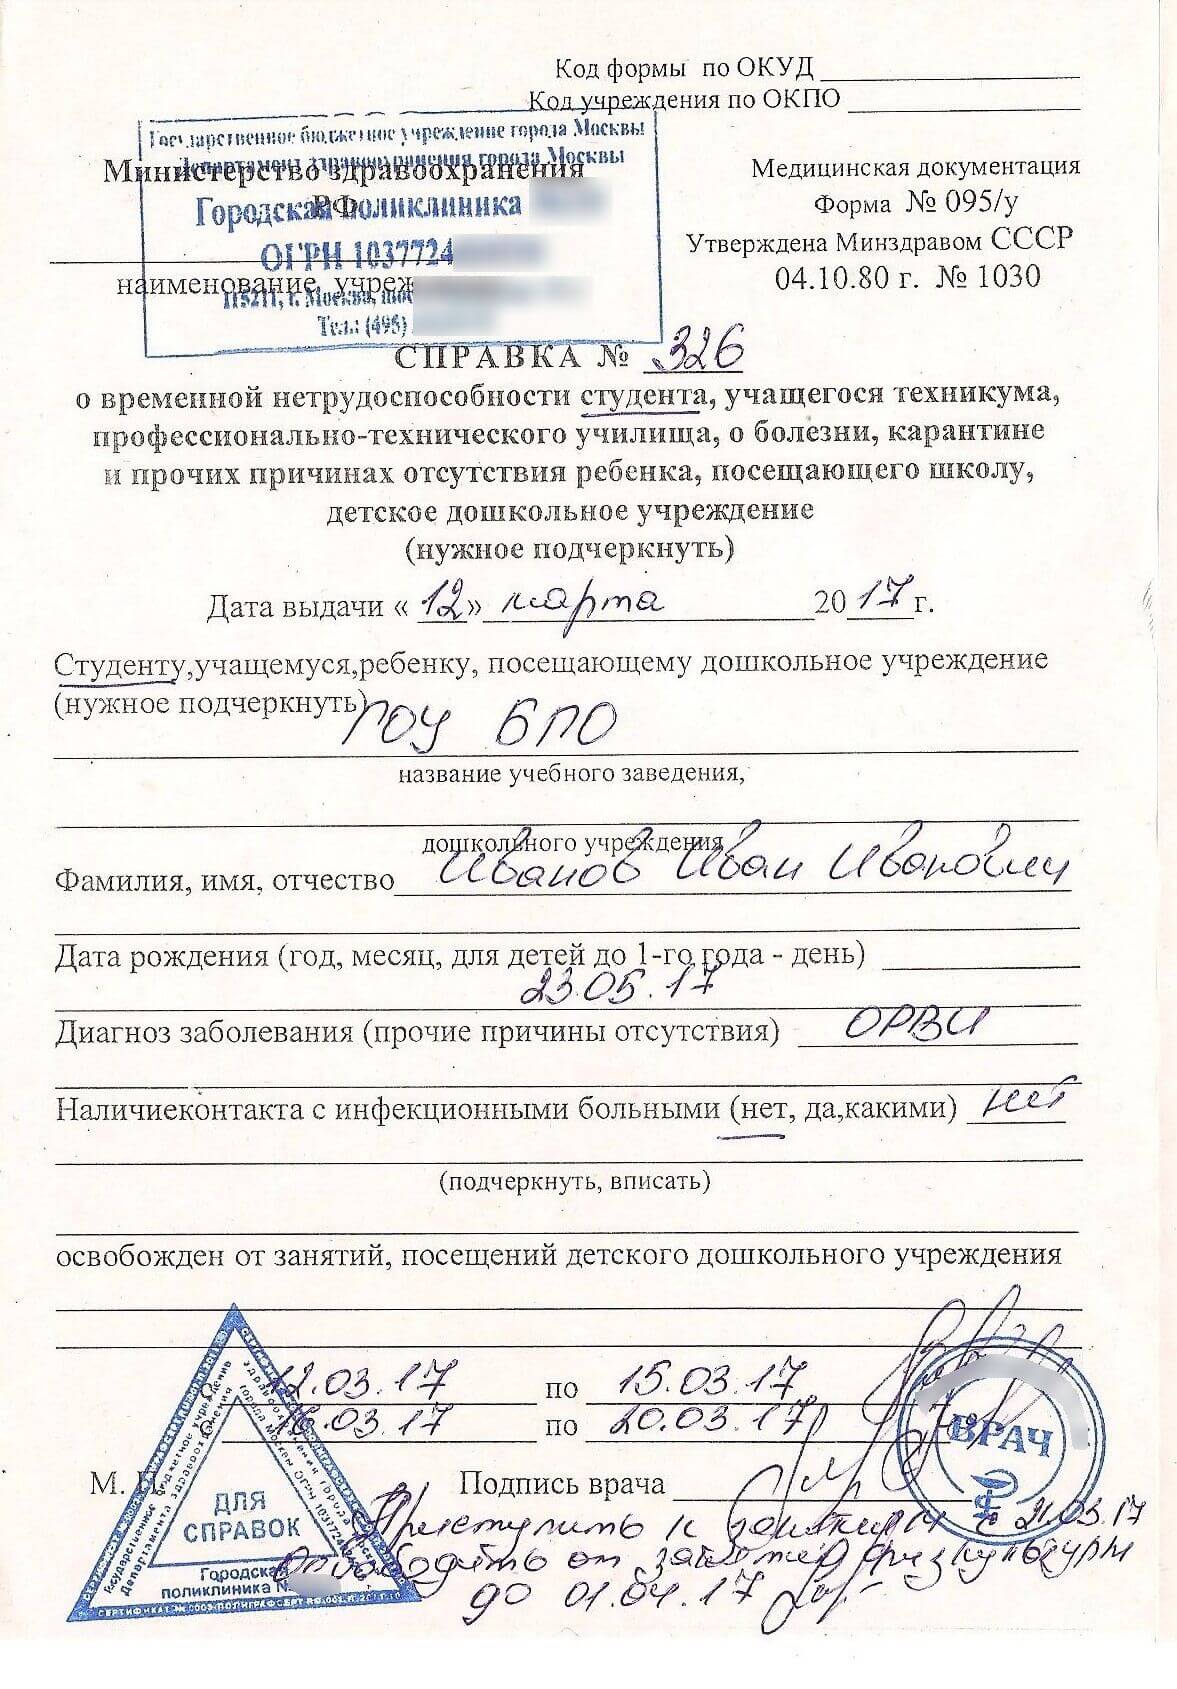 Код формы по ОКУД
Код учреждения по ОКПО
Государственное бюджетное учреждение города Москвы
Департамент здравоохранения города Москвы
Министерство здравоохранения
РФ
Городская поликлиника
ОГРН 1037724
наименование учреж
115211, г. Москва,
Тел.: (495)
Медицинская документация
Форма № 095/у
Утверждена Минздравом СССР
04.10.80 г. № 1030
СПРАВКА № 326
о временной нетрудоспособности студента, учащегося техникума,
профессионально-технического училища, о болезни, карантине
и прочих причинах отсутствия ребенка, посещающего школу,
детское дошкольное учреждение
(нужное подчеркнуть)
Дата выдачи « 12 » марта 2017 г.
Студенту,учащемуся,ребенку, посещающему дошкольное учреждение
(нужное подчеркнуть)
ГОУ БПО
название учебного заведения,
дошкольного учреждения
Фамилия, имя, отчество Иванов Иван Иванович
Дата рождения (год, месяц, для детей до 1-го года - день)
23.05.17
Диагноз заболевания (прочие причины отсутствия) ОРВИ
Наличиеконтакта с инфекционными больными (нет, да,какими) нет
(подчеркнуть, вписать)
освобожден от занятий, посещений детского дошкольного учреждения
12.03.17 по 15.03.17
16.03.17 по 20.03.17
ВРАЧ
М. П. Подпись врача
Приступить к занятиям с 21.03.17
от физкультуры
до 01.04.17
Государственное бюджетное учреждение здравоохранения города Москвы
Департамента здравоохранения
ДЛЯ
СПРАВОК
Городская
поликлиника №